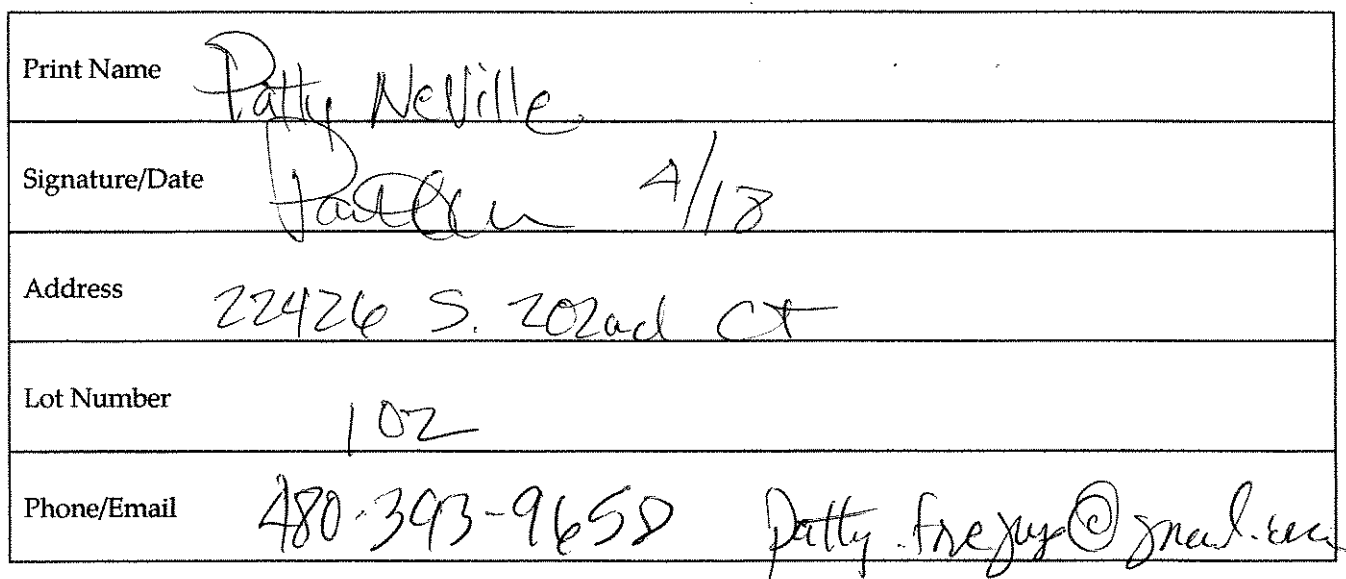 Print Name Patty Neville
Signature/Date 4/18
Address 22426 S. 202nd Ct
Lot Number 102
Phone/Email 480-393-9658